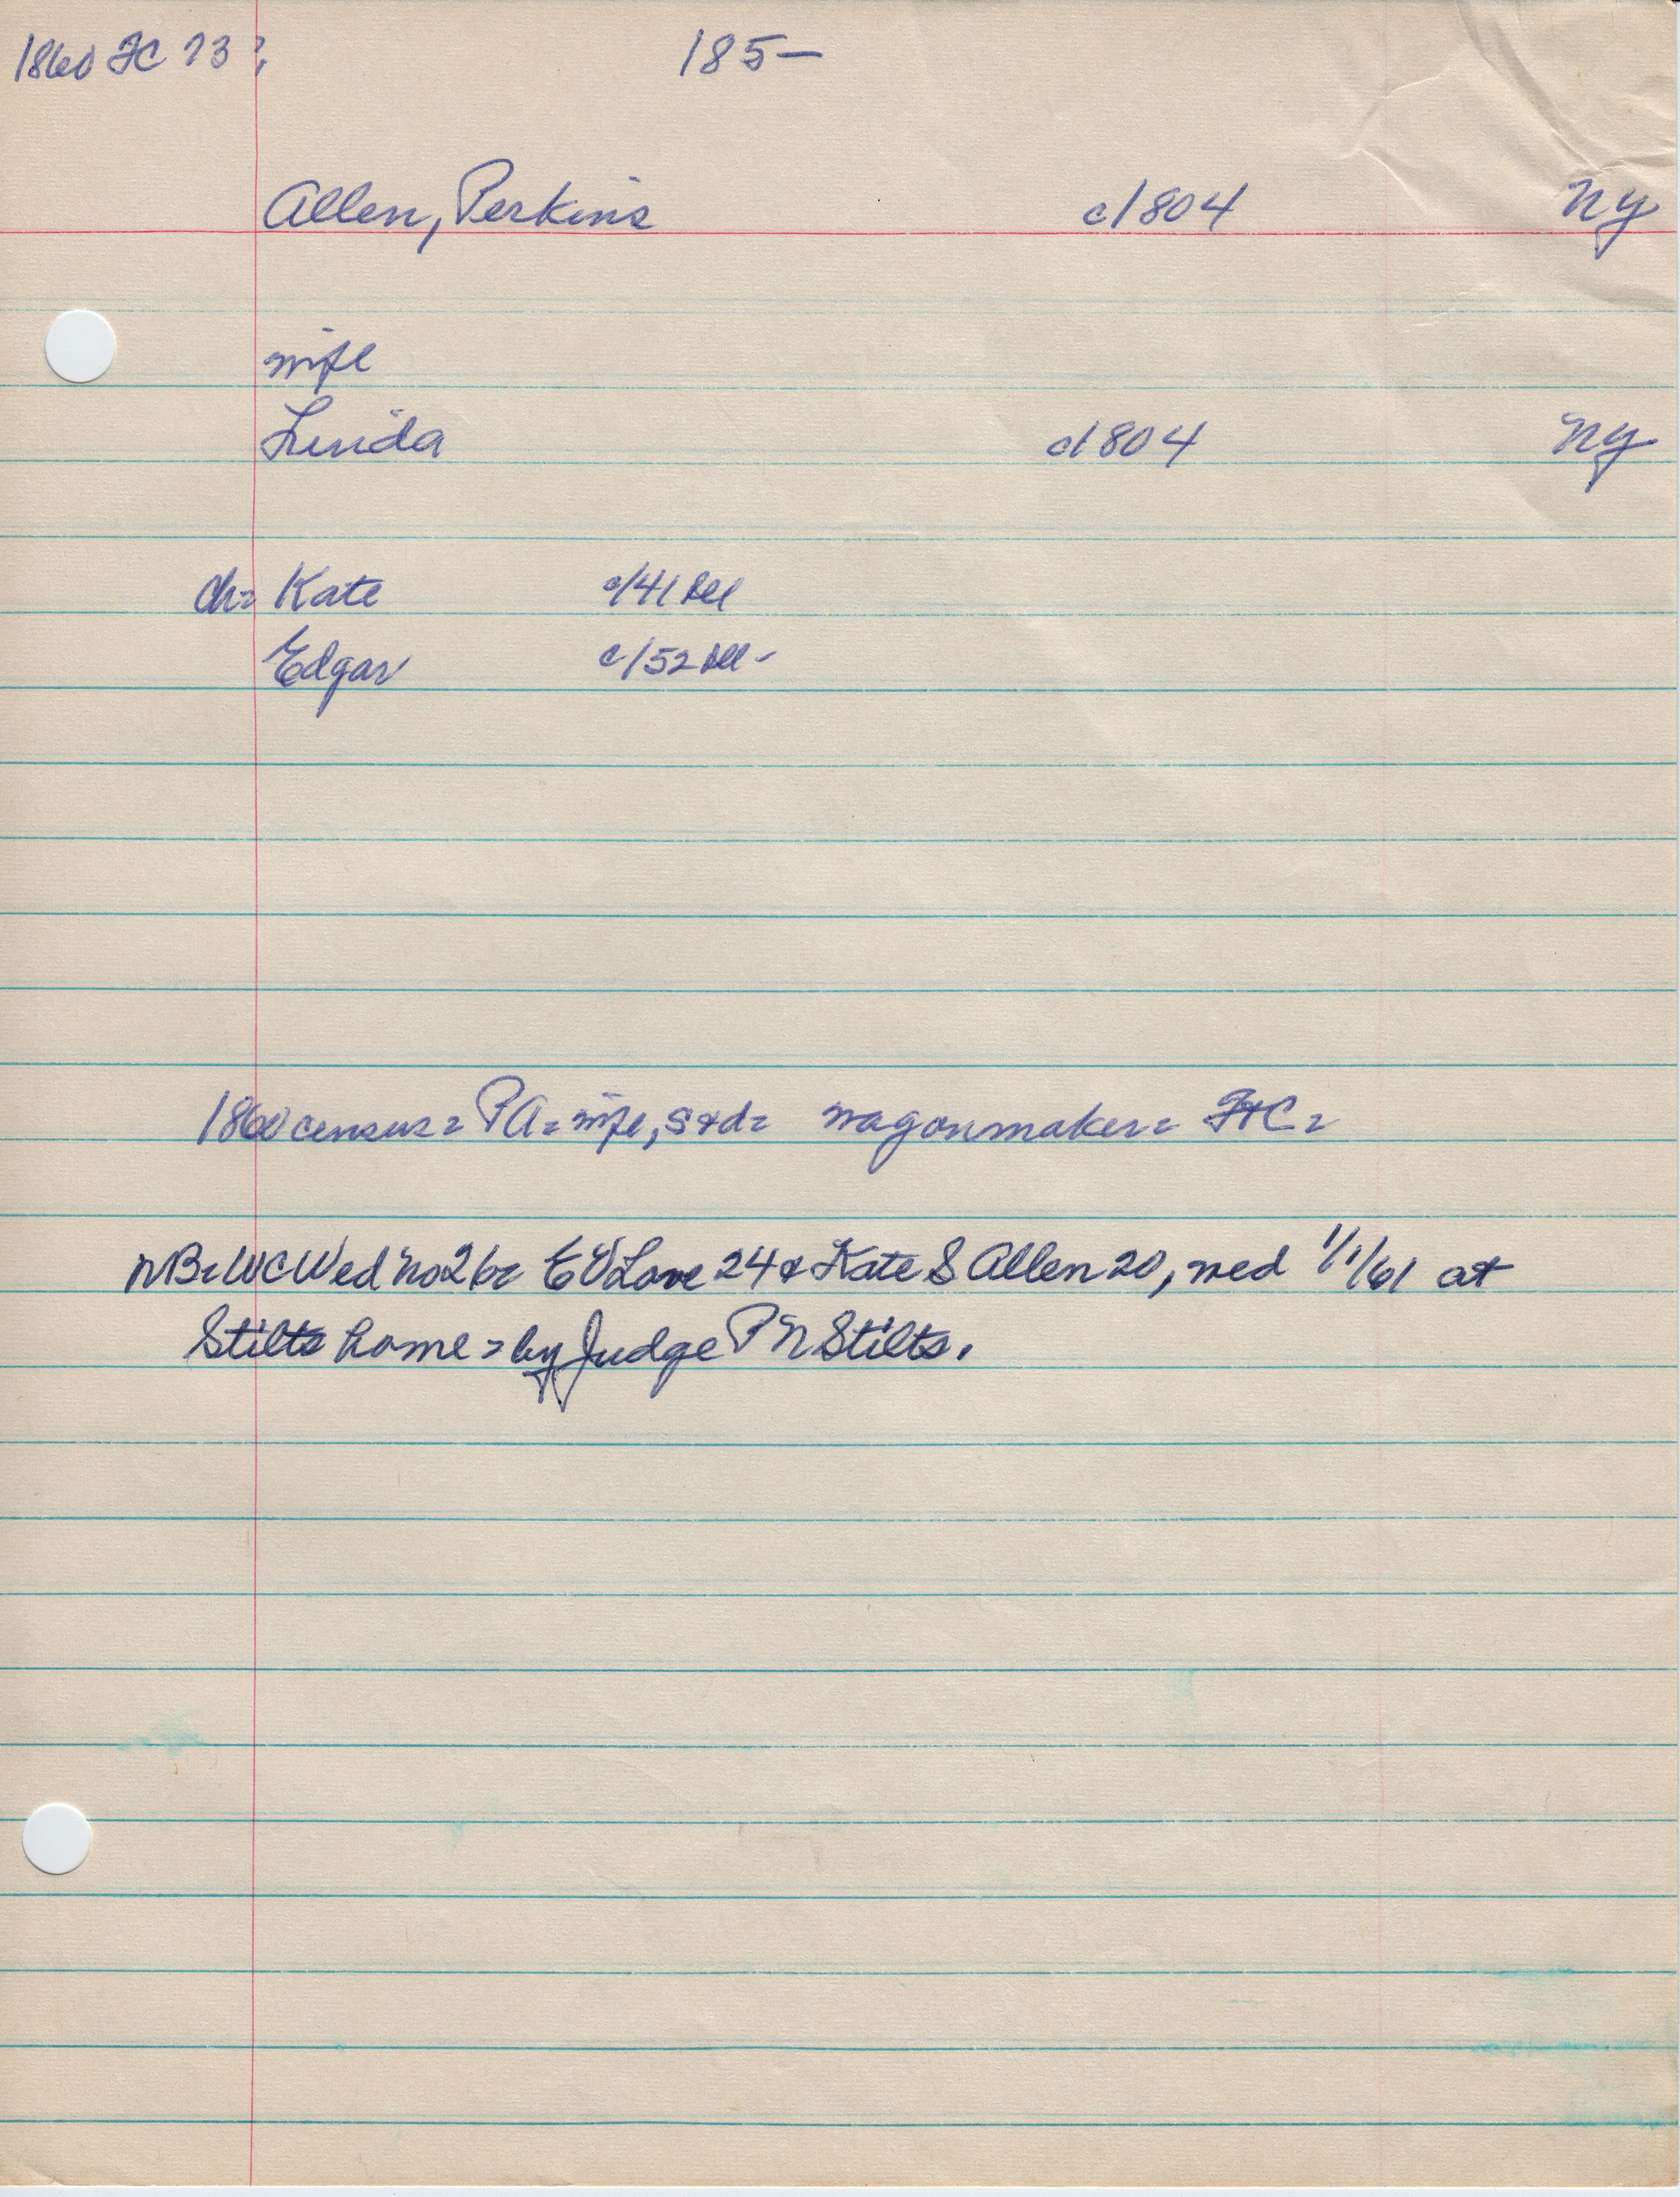 1860 FC 73? 185—
Allen, Perkins c1804 NY
wife
Linida c1804 NY
ch= Kate c/41 Ill
Edgar c/52 Ill-
1860 census= PA= wife, s+d= wagonmaker= FtC=
NB= WC Wed no26= E V Love 24 & Kate S Allen 20, wed 1/1/61 at
Stilts home= by Judge P N Stilts.